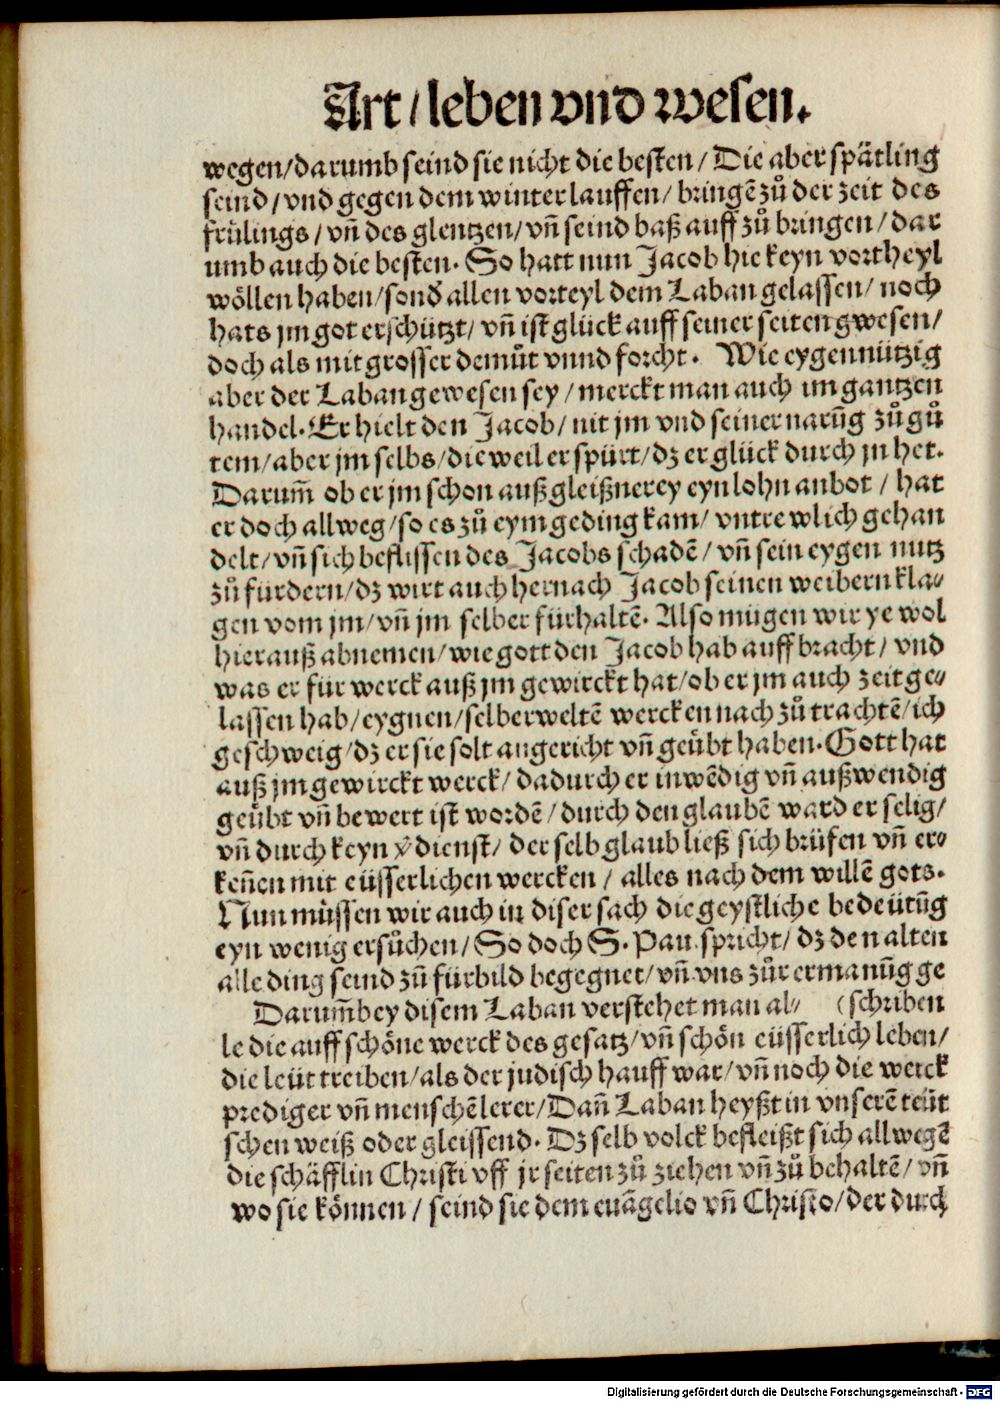 Art / leben vnd wesen.
wegen / darumb seind sie nicht die besten / Die aber spätling
seind / vnd gegen dem winter lauffen / bringē zů der zeit des
frülings / vn̄ des glentzen / vn̄ seind baß auff zů bringen / dar
umb auch die besten. So hatt nun Jacob hie keyn vortheyl
wöllen haben / sonđ allen vorteyl dem Laban gelassen / noch
hats jm got erschützt / vn̄ ist glück auff seiner seiten gwesen /
doch als mit grosser demůt vnnd forcht. Wie eygennützig
aber der Laban gewesen sey / merckt man auch im gantzen
handel. Er hielt den Jacob / nit jm vnd seiner narūg zů gů
tem / aber jm selbs / die weil er spürt / dz er glück durch jn het.
Darum̄ ob er jm schon auß gleißnerey eyn lohn anbot / hat
er doch allweg / so es zů eym geding kam / vntrewlich gehan
delt / vn̄ sich beflissen des Jacobs schadē / vn̄ sein eygen nutz
zů fürdern / dz wirt auch hernach Jacob seinen weibern kla⸗
gen vom jm / vn̄ jm selber fürhaltē. Also mügen wir ye wol
hierauß abnemen / wie gott den Jacob hab auffbracht / vnd
was er für werck auß jm gewirckt hat / ob er jm auch zeit ge⸗
lassen hab / eygnen / selberweltē wercken nach zů trachtē / ich
geschweig / dz er sie solt angericht vn̄ geůbt haben. Gott hat
auß jm gewirckt werck / dadurch er inwēdig vn̄ außwendig
geůbt vn̄ bewert ist wordē / durch den glaubē ward er selig /
vn̄ durch keyn v̄dienst / der selb glaub ließ sich brüfen vn̄ er⸗
ken̄en mit eüsserlichen wercken / alles nach dem willē gots.
Nun müssen wir auch in diser sach die geystliche bedeütūg
eyn wenig ersůchen / So doch S. Pau. spricht / dz den alten
alle ding seind zů fürbild begegnet / vn̄ vns zůr ermanūg ge
Darum̄ bey disem Laban verstehet man al⸗ (schriben
le die auff schöne werck des gesatz / vn̄ schön eüsserlich leben /
die leüt treiben / als der judisch hauff war / vn̄ noch die werck
prediger vn̄ menschēlerer / Dan̄ Laban heyßt in vnserē teüt
schen weiß oder gleissend. Dz selb volck befleißt sich allwegē
die schäfflin Christi vff jr seiten zů ziehen vn̄ zů behaltē / vn̄
wo sie können / seind sie dem euāgelio vn̄ Christo / der durch
Digitalisierung gefördert durch die Deutsche Forschungsgemeinschaft - DFG